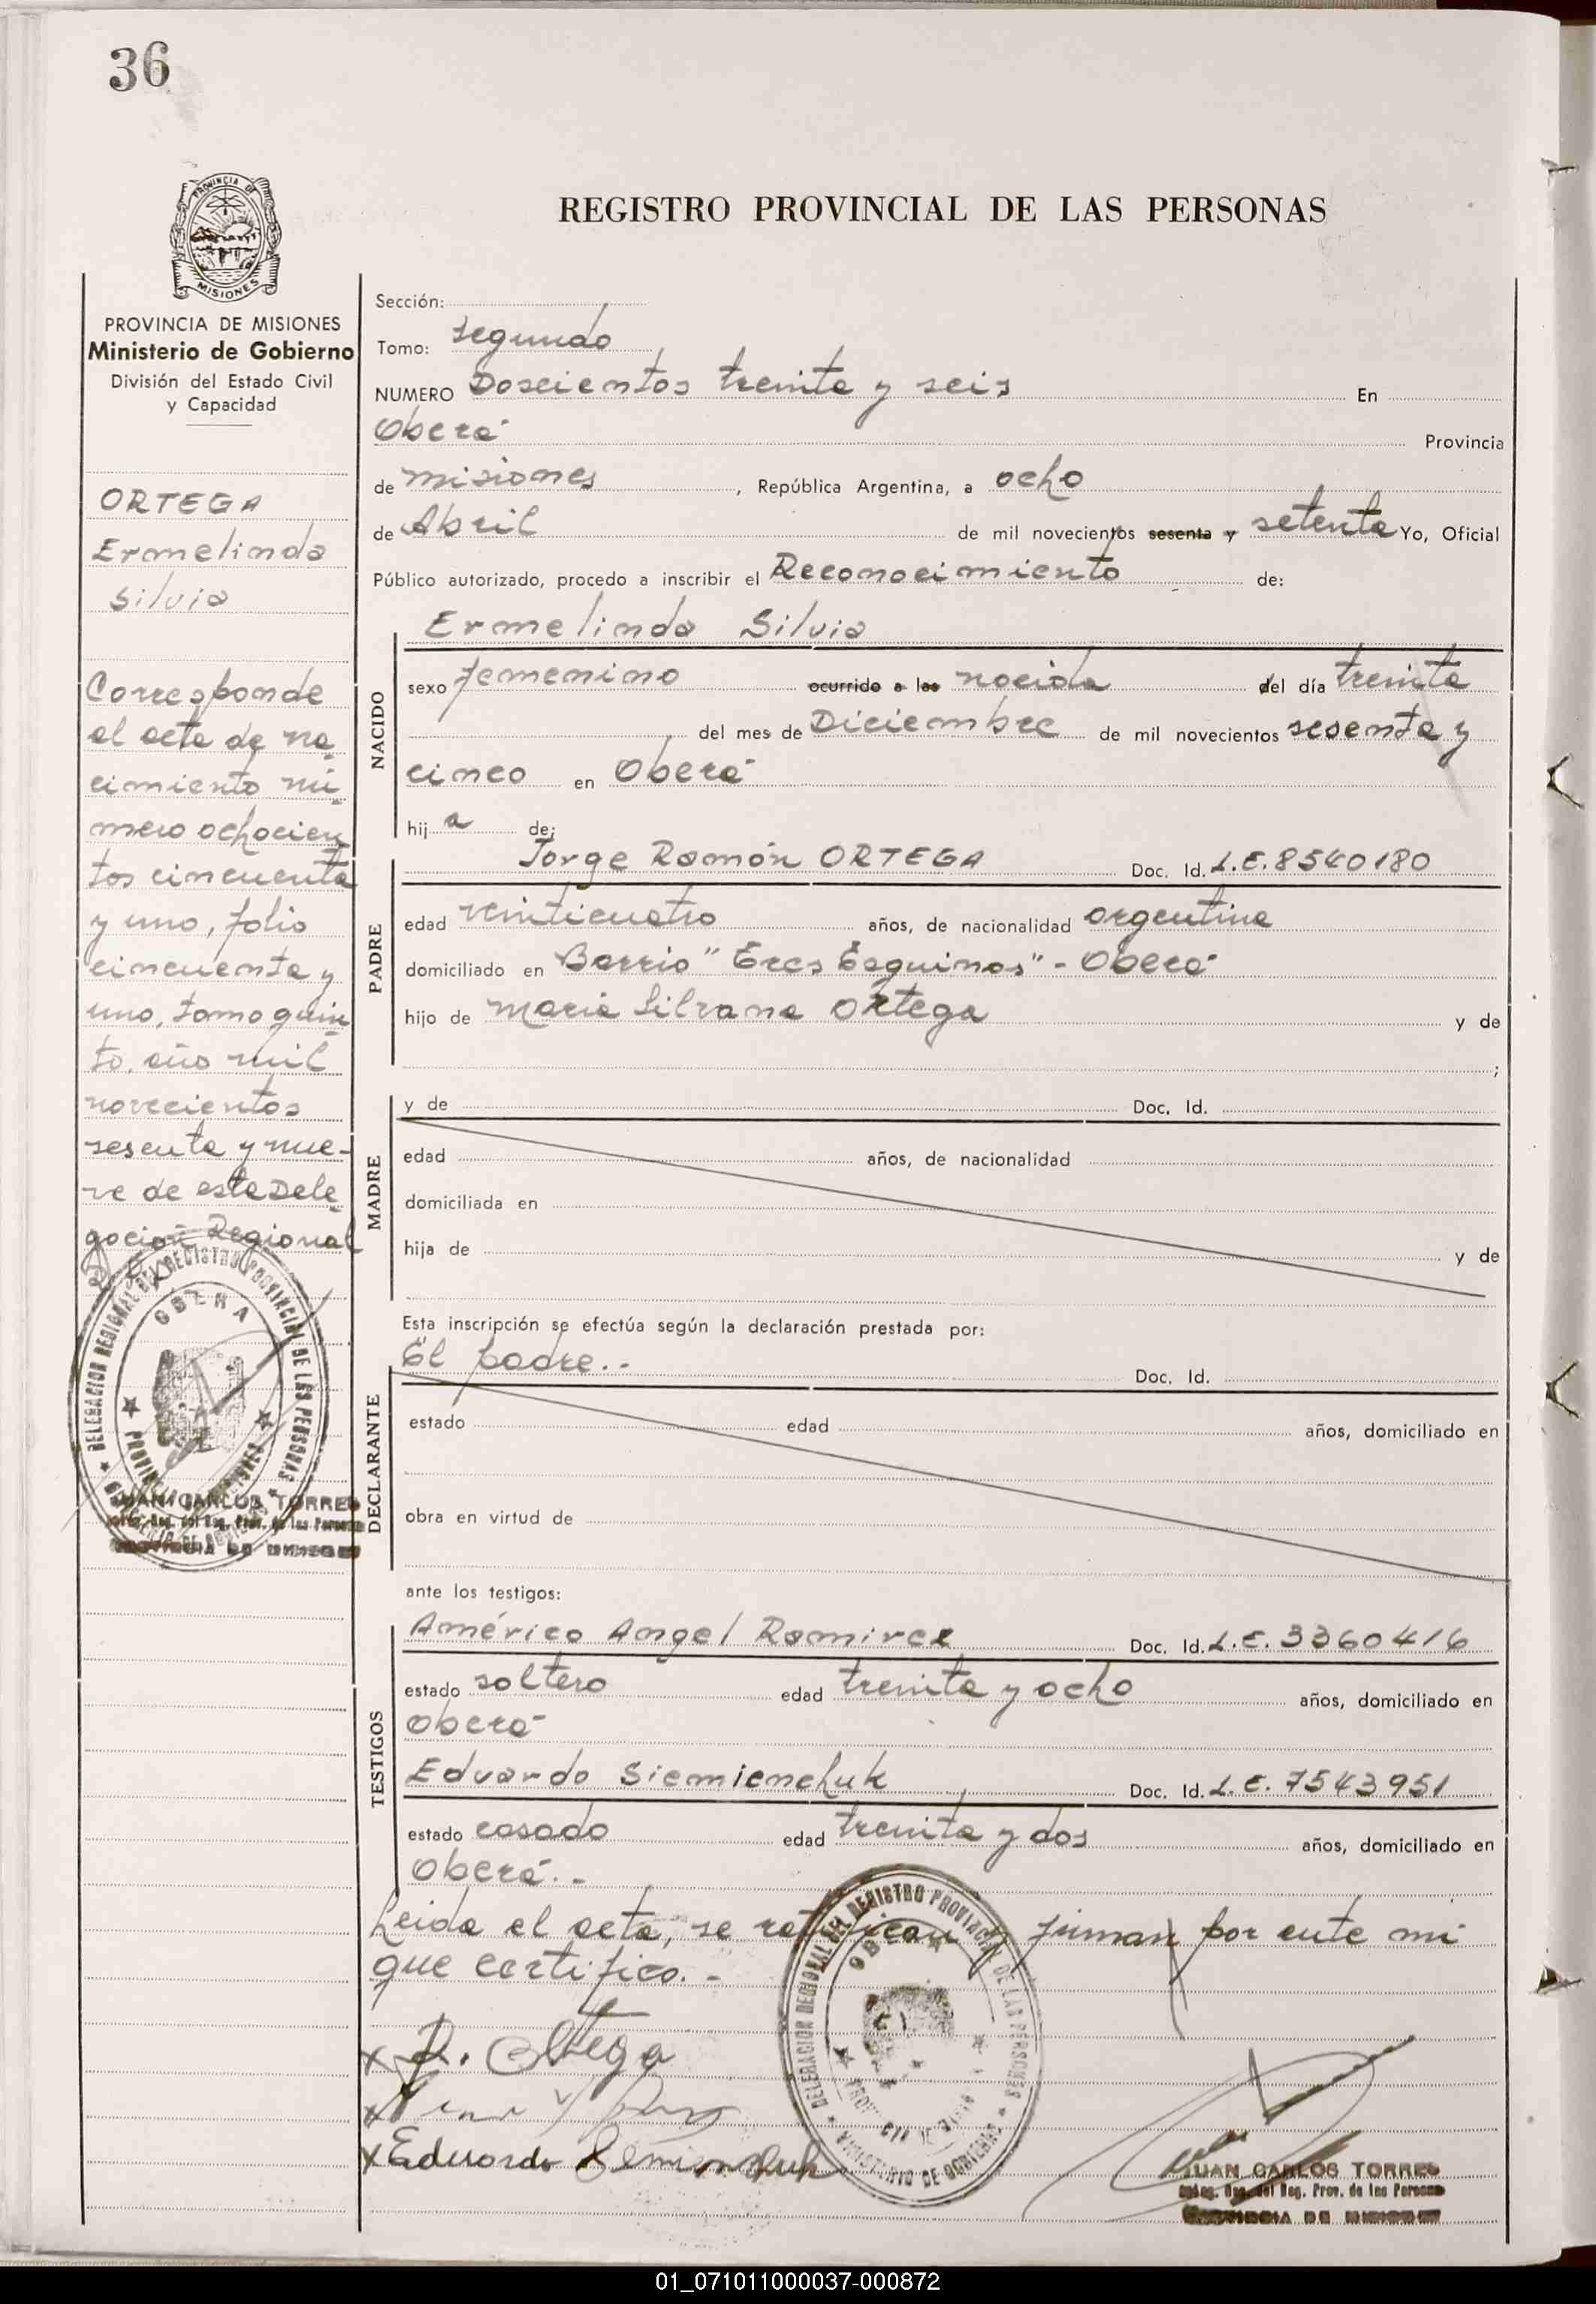 36
PROVINCIA DE
MISIONES
REGISTRO PROVINCIAL DE LAS PERSONAS
PROVINCIA DE MISIONES
Ministerio de Gobierno
División del Estado Civil
y Capacidad
ORTEGA
Ermelinda
Silvia
Corresponde
al acta de na
cimiento nú
mero ochocien
tos cincuenta
y uno, folio
cincuenta y
uno, tomo quin
to, año mil
novecientos
sesenta y nue-
ve de esta Dele
gación Regional
DELEGACION REGIONAL DEL REGISTRO PROVINCIAL DE LAS PERSONAS
OBERA
JUAN CARLOS TORRES
Reg. del Reg. Prov. de las Personas
PROVINCIA DE MISIONES
Sección:
Tomo: segundo
NUMERO Doscientos treinta y seis En
Oberá Provincia
de Misiones, República Argentina, a ocho
de Abril de mil novecientos sesenta y setenta Yo, Oficial
Público autorizado, procedo a inscribir el Reconocimiento de:
NACIDO
Ermelinda Silvia
sexo femenino ocurrido a las nacida del día treinta
del mes de Diciembre de mil novecientos sesenta y
cinco en Oberá
hija de:
PADRE
Jorge Ramón ORTEGA Doc. Id. L.E. 8540180
edad veinticuatro años, de nacionalidad argentina
domiciliado en Barrio "Tres Esquinas" - Oberá
hijo de María Silvana Ortega y de
;
MADRE
y de Doc. Id.
edad años, de nacionalidad
domiciliada en
hija de y de
Esta inscripción se efectúa según la declaración prestada por:
DECLARANTE
El padre.. Doc. Id.
estado edad años, domiciliado en
obra en virtud de
ante los testigos:
TESTIGOS
Américo Angel Ramirez Doc. Id. L.E. 3360416
estado soltero edad treinta y ocho años, domiciliado en
Oberá
Eduardo Siemienchuk Doc. Id. L.E. 7543951
estado casado edad treinta y dos años, domiciliado en
Oberá.-
Leida el acta, se ratifican y firman por ante mi
que certifico.-
DELEGACION REGIONAL DEL REGISTRO PROVINCIAL DE LAS PERSONAS
OBERA
MINISTERIO DE GOBIERNO
x J. Ortega
x Eduardo Semienchuk
JUAN CARLOS TORRES
Reg. del Reg. Prov. de las Personas
PROVINCIA DE MISIONES
01_071011000037-000872